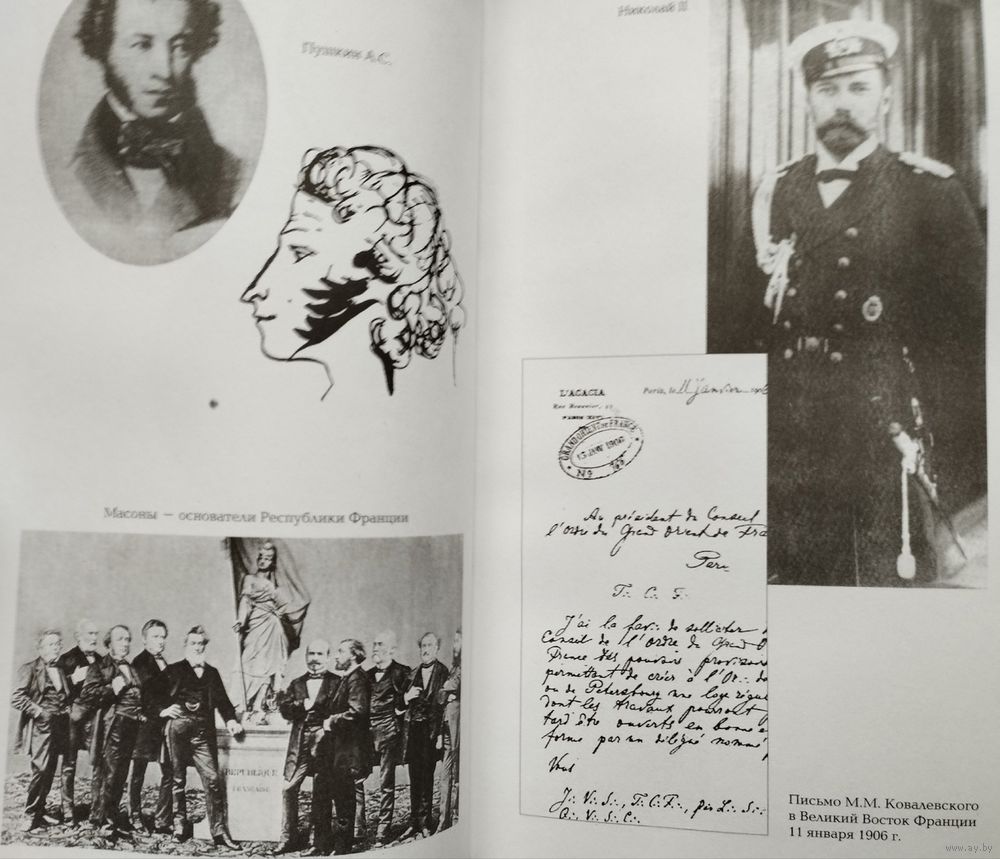 Пушкин А.С.
Масоны — основатели Республики Франции
REPUBLIQUE
FRANÇAISE
Николай II
L'ACACIA
Paris, le 11 janvier 1906
GRAND ORIENT DE FRANCE
15 JANV 1906
No 765
Au président du Conseil
l'Ordre du Grand Orient de Fra
Paris
T∴ C∴ F∴
J'ai la faveur de solliciter
Conseil de l'ordre du Grand O
France des pouvoirs provisoires
permettant de créer à l'Or∴ de
ou de Petersbourg une loge régu
dont les travaux pourront
tard être ouverts en bonne
forme par un délégué nommé
J∴ V∴ S∴, T∴ C∴ F∴, par L∴ S∴
Q∴ V∴ S∴ C∴
Письмо М.М. Ковалевского
в Великий Восток Франции
11 января 1906 г.
www.ay.by